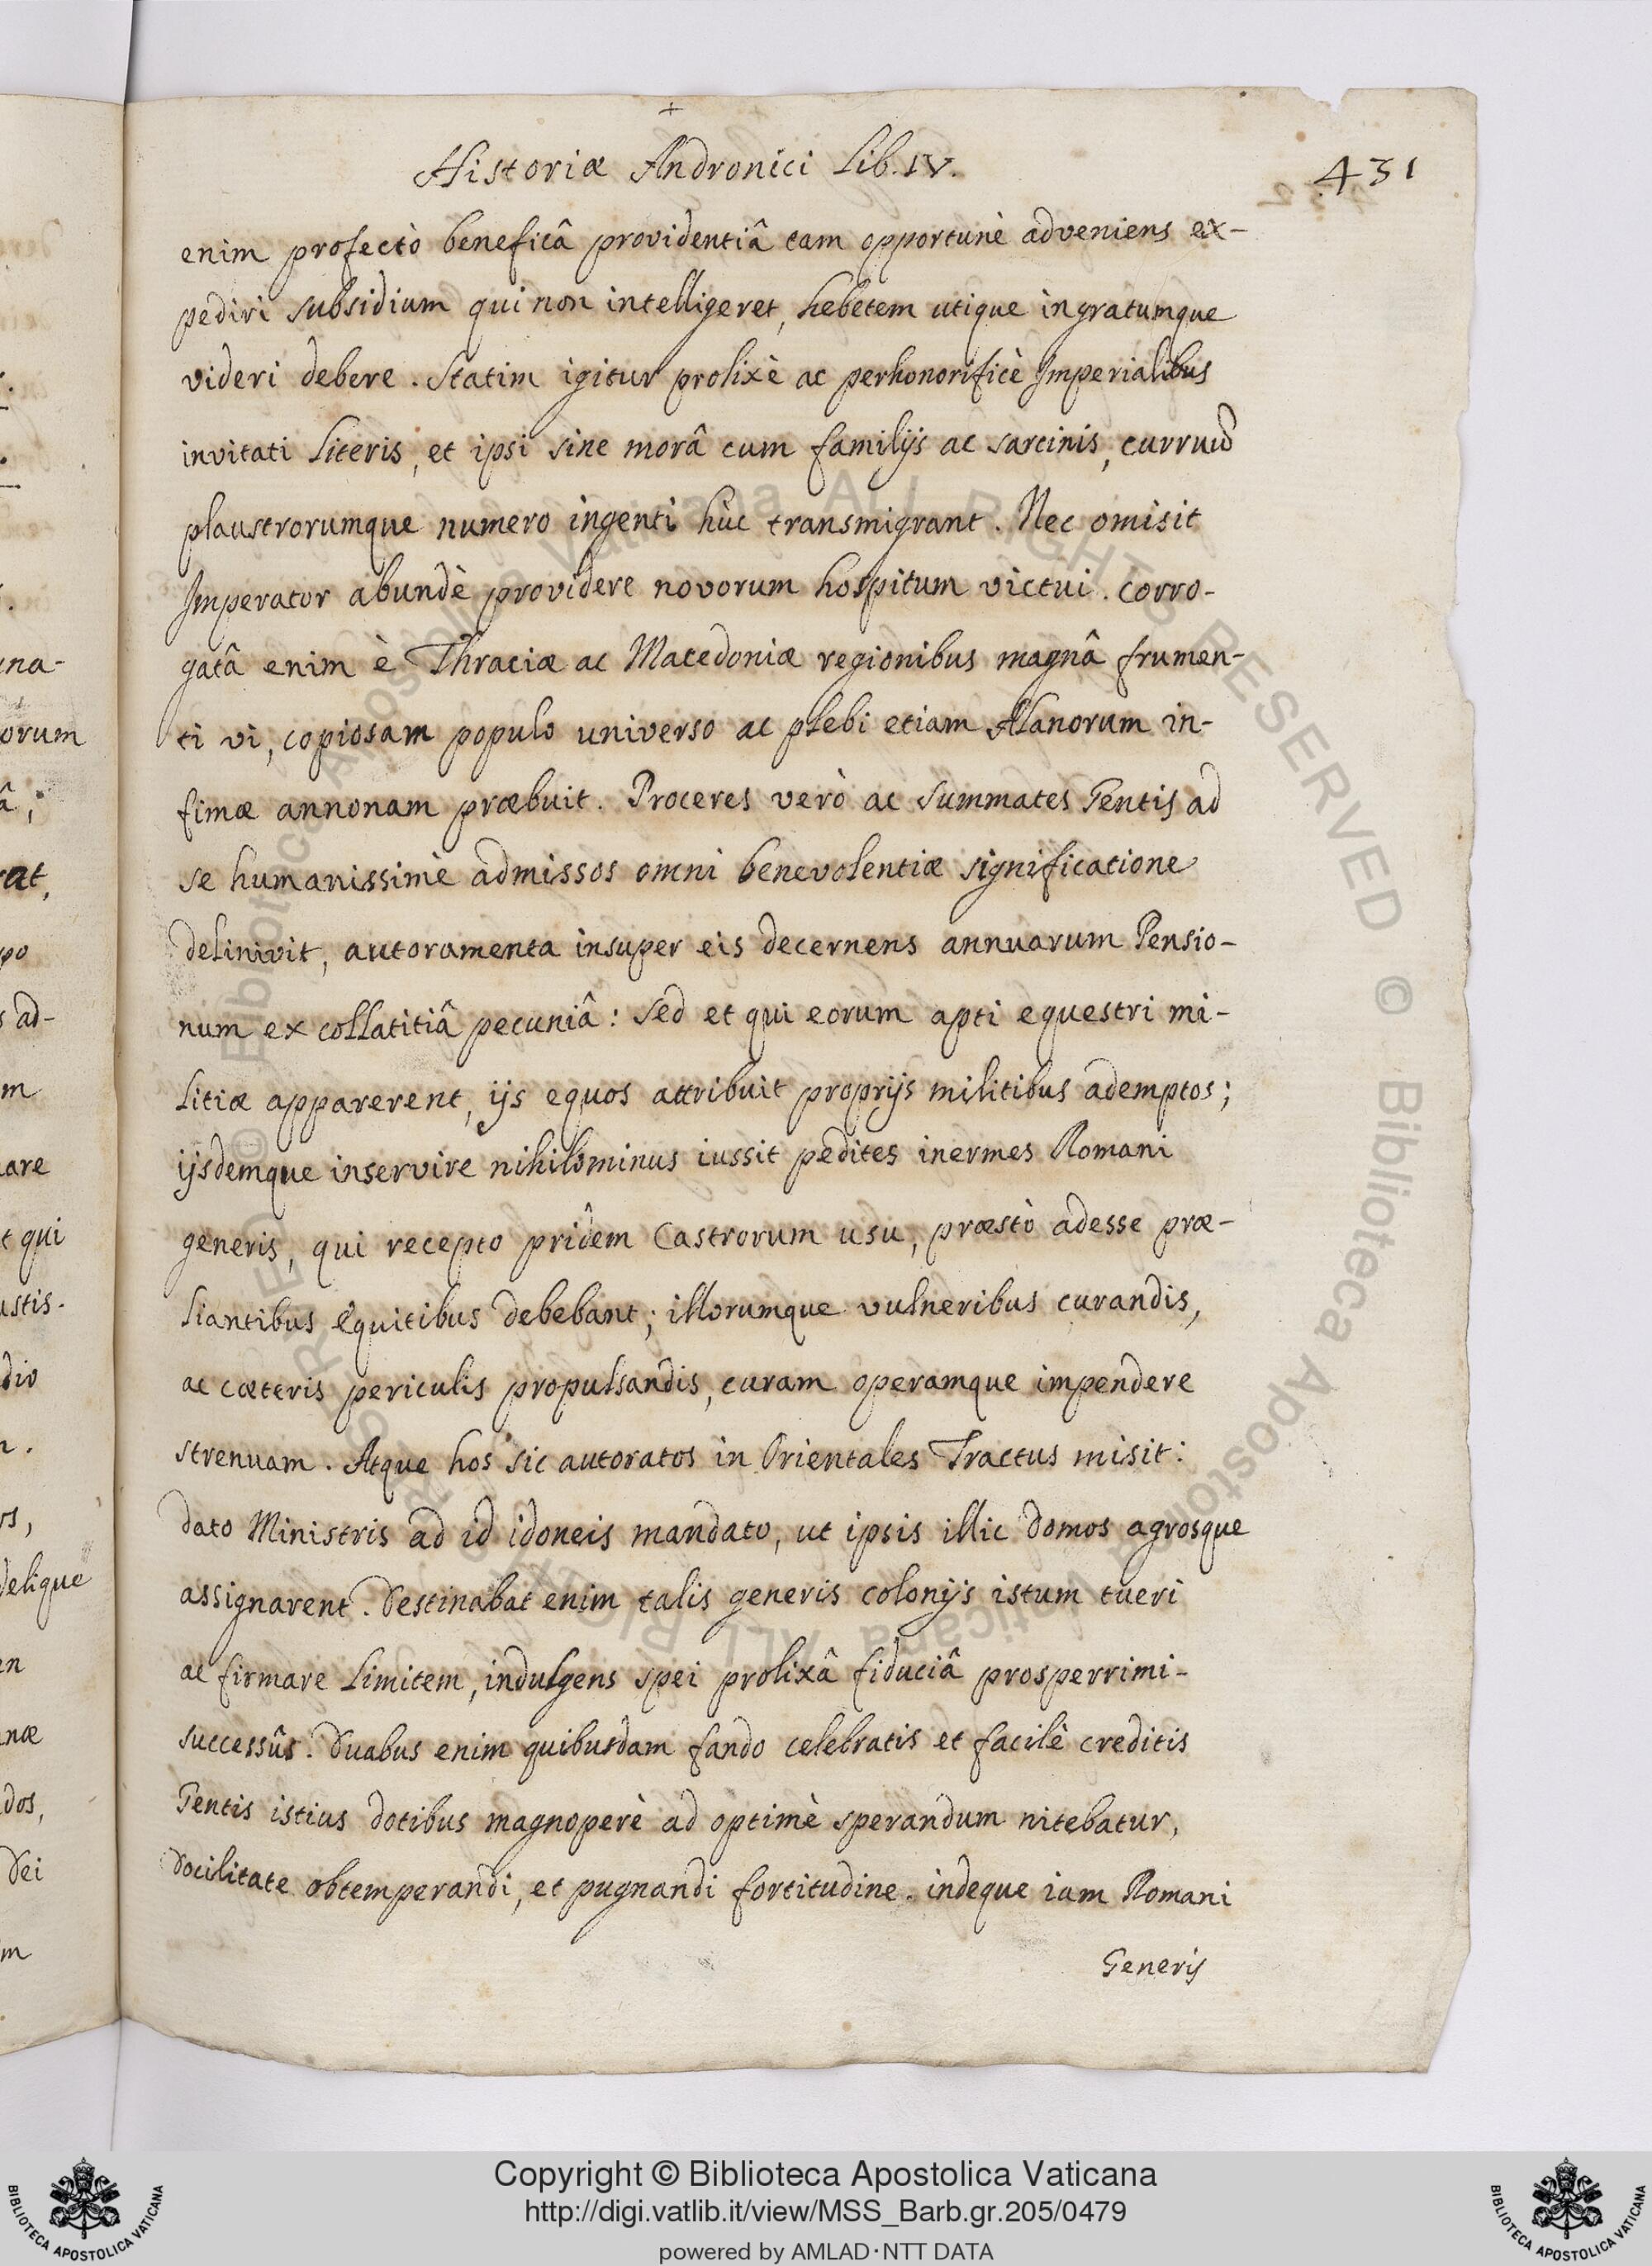 +
Historiæ Andronici Lib. IV.
431
enim profectò beneficâ providentiâ tam opportunè adveniens ex-
pediri subsidium qui non intelligeret, hebetem utique ingratumque
videri debere. Statim igitur prolixè ac perhonorificè Imperialibus
invitati literis, et ipsi sine morâ cum familijs ac sarcinis, curruũ
plaustrorumque numero ingenti hùc transmigrant. Nec omisit
Imperator abundè providere novorum hospitum victui. Corro-
gatâ enim è Thraciæ ac Macedoniæ regionibus magnâ frumen-
ti vi, copiosam populo universo ac plebi etiam Alanorum in-
fimæ annonam præbuit. Proceres verò ac Summates Gentis ad
se humanissimè admissos omni benevolentiæ significatione
delinivit, autoramenta insuper eis decernens annuarum Pensio-
num ex collatitiâ pecuniâ: Sed et qui eorum apti equestri mi-
litiæ apparerent, ijs equos attribuit proprijs militibus ademptos;
ijsdemque inservire nihilominus iussit pedites inermes Romani
generis, qui recepto pridem Castrorum usu, præstò adesse præ-
liantibus Equitibus debebant; illorumque vulneribus curandis,
ac cæteris periculis propulsandis, curam operamque impendere
strenuam. Atque hos sic autoratos in Orientales Tractus misit:
dato Ministris ad id idoneis mandato, ut ipsis illic domos agrosque
assignarent. Destinabat enim talis generis colonijs istum tueri
ac firmare limitem, indulgens spei prolixâ fiduciâ prosperrimi-
successûs. Duabus enim quibusdam fando celebratis et facilè creditis
Gentis istius dotibus magnoperè ad optimè sperandum nitebatur,
docilitate obtemperandi, et pugnandi fortitudine. indeque iam Romani
Generis
na-
orum
â;
rat,
po
ad-
m
are
t qui
ustis.
dio
delique
en
næ
dos,
Dei
m
© Biblioteca Apostolica Vaticana ALL RIGHTS RESERVED © Biblioteca Apostolica Vaticana ALL RIGHTS RESERVED
Copyright © Biblioteca Apostolica Vaticana
http://digi.vatlib.it/view/MSS_Barb.gr.205/0479
powered by AMLAD·NTT DATA
BIBLIOTECA APOSTOLICA VATICANA
BIBLIOTECA APOSTOLICA VATICANA